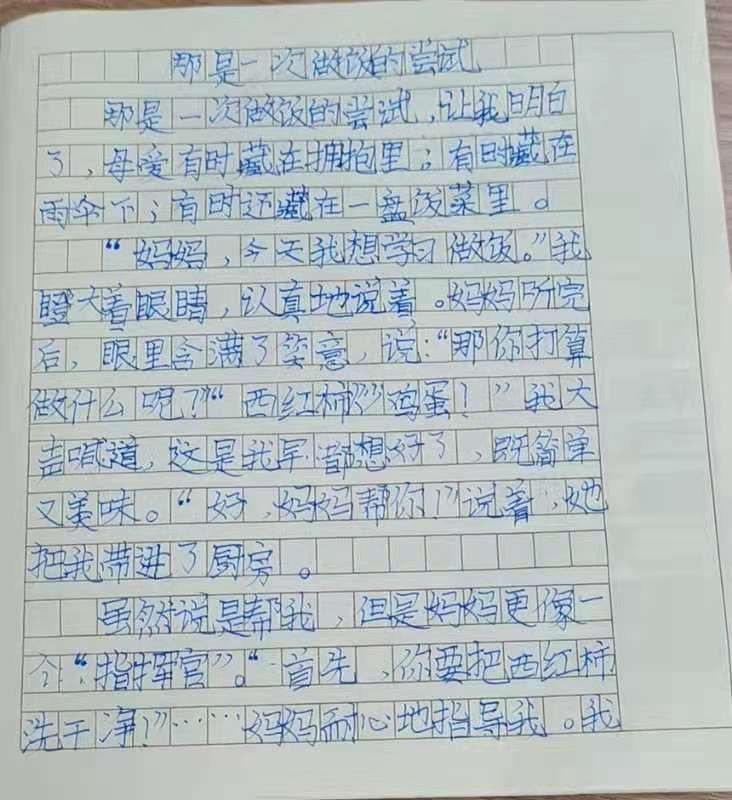 那是一次做饭的尝试
那是一次做饭的尝试，让我明白
了，母爱有时藏在拥抱里；有时藏在
雨伞下；有时还藏在一盘饭菜里。
“妈妈，今天我想学习做饭。”我
瞪大着眼睛，认真地说着。妈妈听完
后，眼里含满了笑意，说：“那你打算
做什么呢？”“西红柿鸡蛋！”我大
声喊道，这是我早都想好了，既简单
又美味。“好，妈妈帮你！”说着，她
把我带进了厨房。
虽然说是帮我，但是妈妈更像一
个“指挥官”。“首先，你要把西红柿
洗干净！”……妈妈耐心地指导我。我